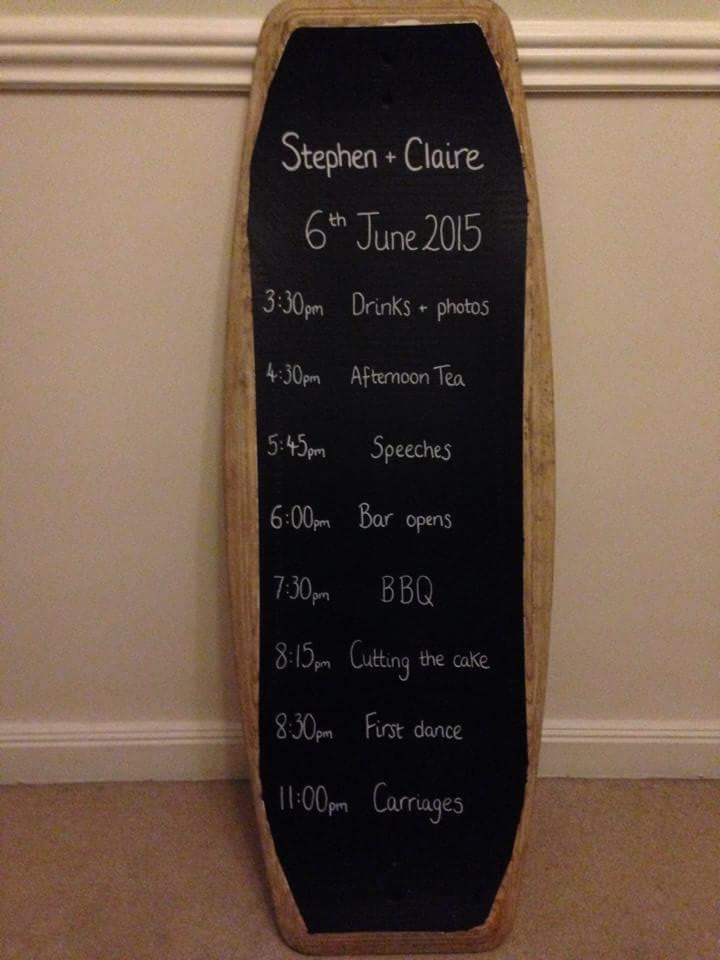 Stephen + Claire
6th June 2015
3:30pm Drinks + photos
4:30pm Afternoon Tea
5:45pm Speeches
6:00pm Bar opens
7:30pm BBQ
8:15pm Cutting the cake
8:30pm First dance
11:00pm Carriages